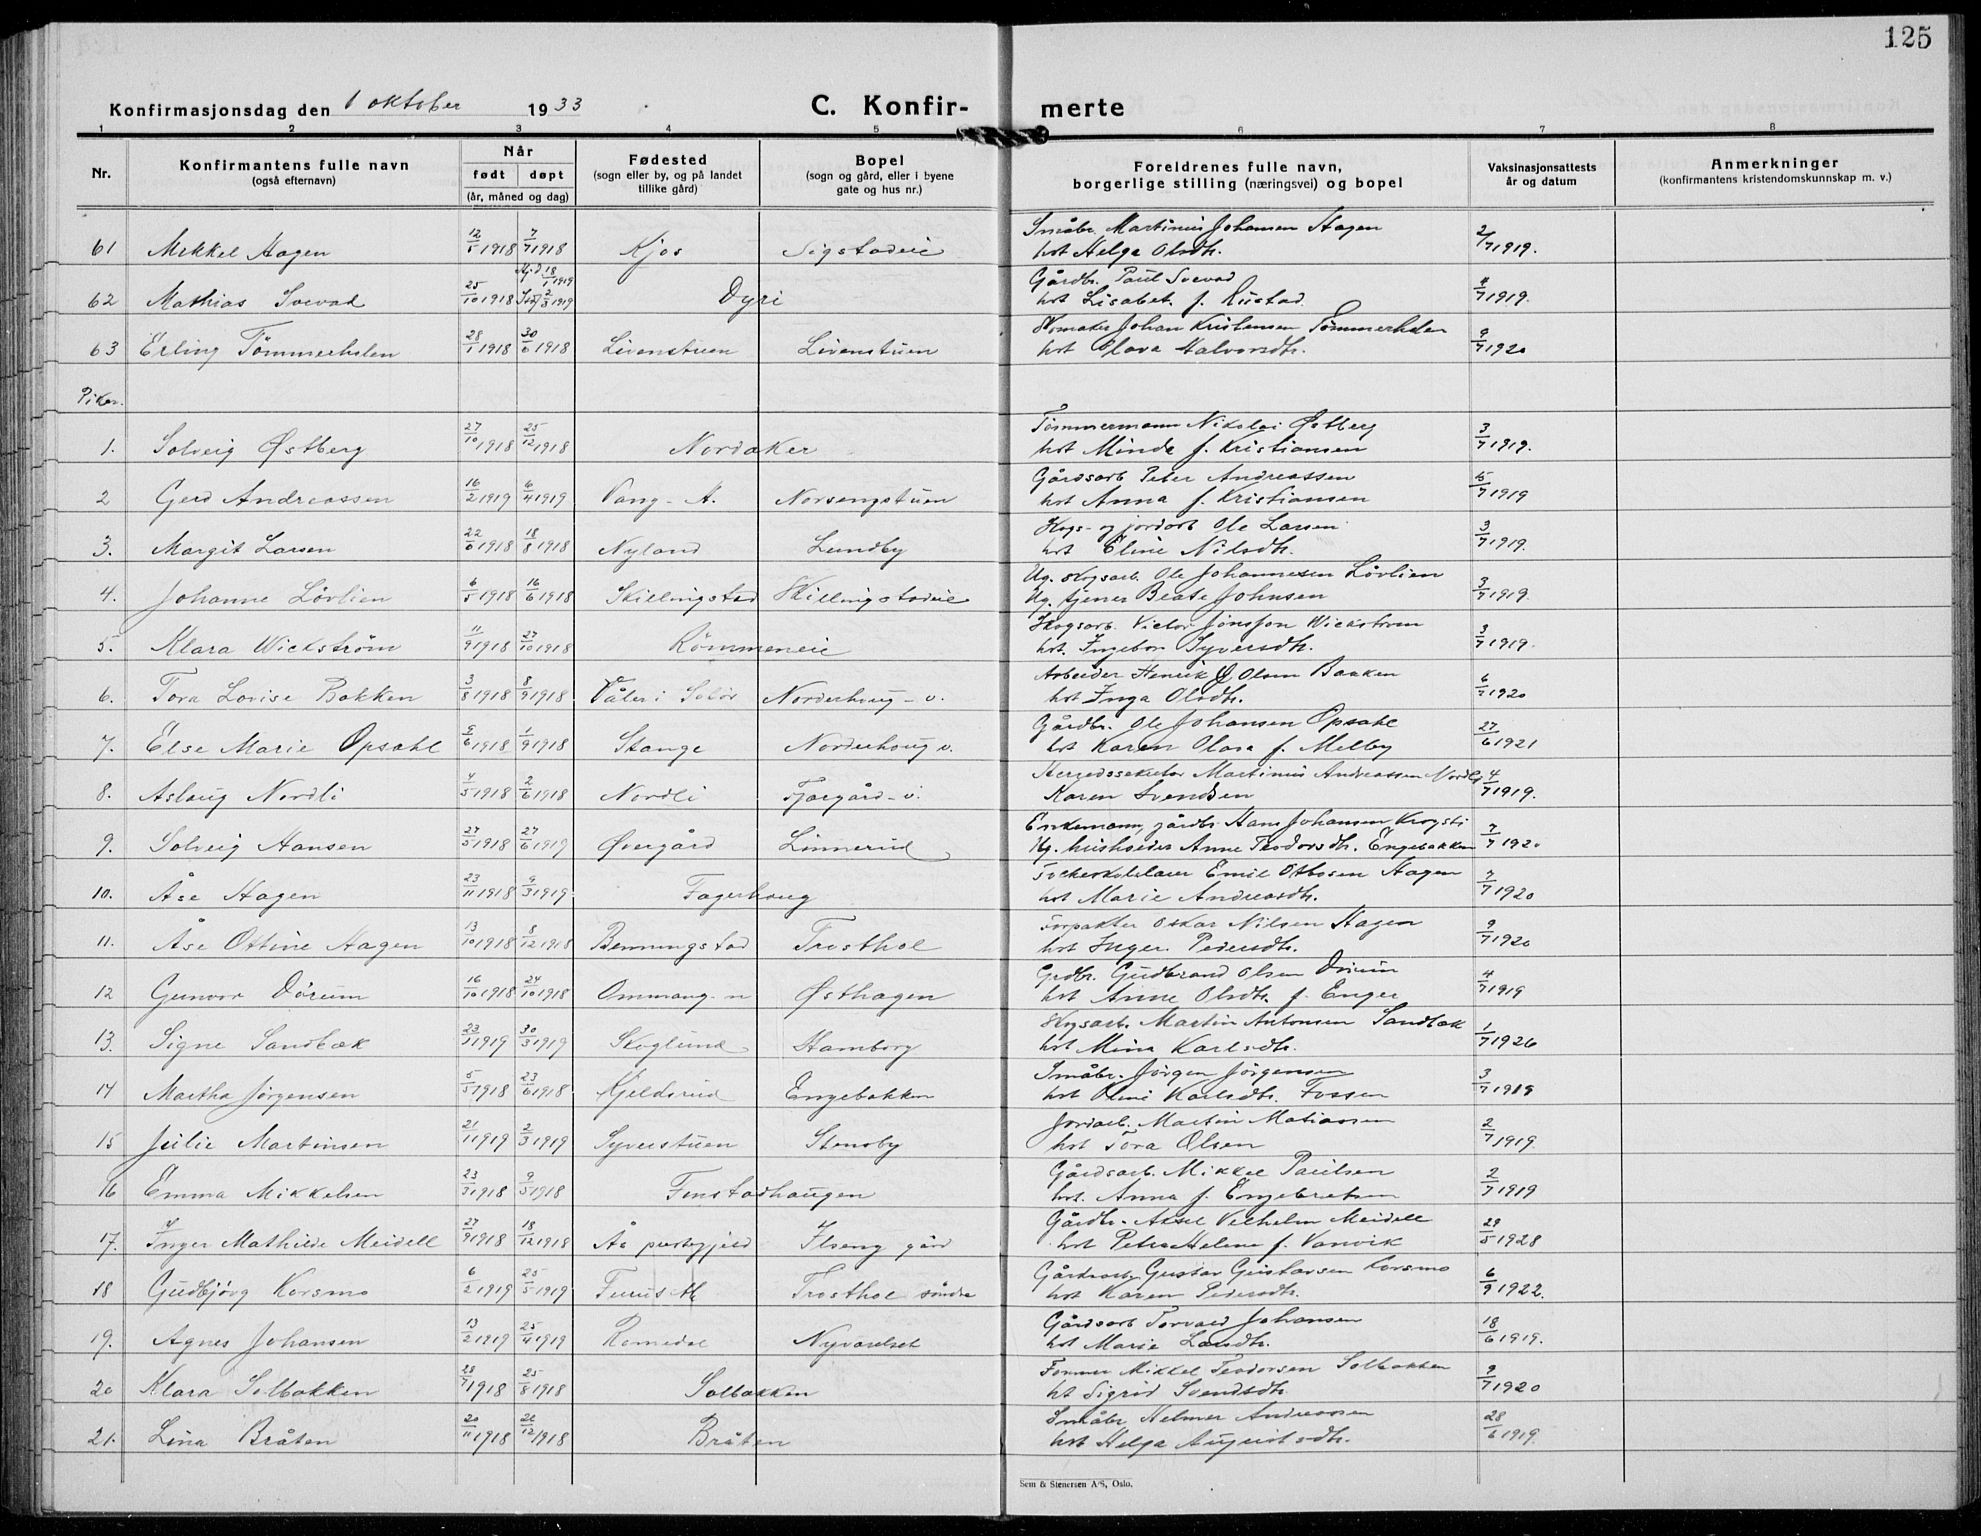 125
Konfirmasjonsdag den 1 oktober 1933
C. Konfir- merte
1 2 3 4 5 6 7 8
Nr. Konfirmantens fulle navn (også efternavn) Når født døpt (år, måned og dag) Fødested (sogn eller by, og på landet tillike gård) Bopel (sogn og gård, eller i byene gate og hus nr.) Foreldrenes fulle navn, borgerlige stilling (næringsvei) og bopel Vaksinasjonsattests år og datum Anmerkninger (konfirmantens kristendomskunnskap m. v.)
61 Mikkel Hagen 12/5 1918 7/7 1918 Kjos Sigstadeie Småbr. Martinius Johansen Hagen
hst Helga Olsdtr. 2/7 1919.
62 Mathias Svevad 25/10 1918 Hjd 18/1 1919 2/3 1919 Dyri Gårdbr. Paul Svevad
hst Lisabet f. Rustad 7 1919.
63 Erling Tømmerholen 28/1 1918 30/6 1918 Livenstuen Livenstuen Johan Kristensen Tømmerholen
hst Olava Halvorsdtr. 9/7 1920
Piker.
1. Solveig Østberg 27/10 1918 25/12 1918 Nordaker Tømmermann Nikolai Østberg
hst Minda f. Kristiansen 3/7 1919.
2 Gerd Andreassen 16/2 1919 6/4 1919 Vang - H. Norsengstuen Gårdsarb Peter Andreassen
hst Anna f. Kristiansen 5/7 1919
3. Margit Larsen 22/6 1918 18/8 1918 Nyland Lundby Skogs- og jordarb Ole Larsen
hst Eline Nilsdtr. 3/7 1919.
4. Johanne Løvlien 6/5 1918 16/6 1918 Skillingstad Skillingstadeie Ug. skogsarb. Ole Johannesen Løvlien
Ug. tjener Beate Johnsen 3/7 1919.
5. Klara Wickstrøm 11/9 1918 27/10 1918 Rømmeneie Skogsarb. Victor Jonsson Wickstrøm
hst. Ingebor Syversdtr. 3/7 1919.
6. Tora Lovise Bakken 3/8 1918 8/9 1918 Våler i Solør Norderhoug - v. Arbeider Henrik O Olsen Baaken
hst Inga Olsdtr. 6/7 1920
7. Else Marie Opsahl 6 1918 1/9 1918 Stange Norderhoug v. Gårdbr. Ole Johansen Opsahl
hst Karen Olava f. Melby 27/6 1921
8. Aslaug Nordli 4/5 1918 2/6 1918 Nordli Fjørgård - v. Herredssekretær Martinius Andreassen Nordli
Karen Svendsen 4/7 1919.
9. Solveig Hansen 27/5 1918 27/6 1919 Øvergård Linnerud Enkemann, gårdbr Hans Johansen Krogsti
Ug. husholder Anne Teodorsdtr. Engebakken 7/7 1920
10. Åse Hagen 23/11 1918 9/3 1919. Fagerhoug Emil Ottosen Hagen
hst Marie Andreasdtr. 7/7 1920
11. Åse Ottine Hagen 13/10 1918 8/12 1918 Benningstad Trosthol Forpakter Oskar Nilsen Hagen
hst Inger Pedersdtr. 9/7 1920
12 Gunvor Dørum 16/10 1918 24/10 1918 Ommang - n Østhagen Grdbr. Gudbrand Olsen Dørum
hst Anne Olsdtr. f. Enger 4/7 1919
13. Signe Sandbæk 23/1 1919 30/3 1919 Skoglund Hamborg Skogsarb. Martin Antonsen Sandbæk
hst Mina Karlsdtr. 1/7 1926
14 Martha Jørgensen 5/5 1918 23/6 1918 Kjeldsrud Engebakken Småbr. Jørgen Jørgensen
hst Oline Karlsdtr. Fossen 3/7 1919
15 Julie Martinsen 21/1 1919 2/3 1919 Syverstuen Stensby Jordarb. Martin Matiassen
hst Tora Olsen 2/7 1919.
16 Emma Mikkelsen 23/3 1918 9/5 1918 Finstadhaugen Gårdsarb. Mikkel Paulsen
hst. Anna f. Engebretsen 2/7 1919
17. Inger Mathilde Meidell 27/9 1918 18/12 1918 Ås prestegjeld Ilseng gård Gårdbr. Aksel Vilhelm Meidell
hst Petra Helene f. Vanvik 29/5 1928
18 Gudbjørg Korsmo 6/2 1919 25/5 1919 Furuseth Trosthol søndre Gårdsarb. Gustav Gustavsen Korsmo
hst Karen Pedersdtr. 6/9 1922.
19. Agnes Johansen 13/2 1919 25/4 1919 Romedal Nyvarelset Gårdsarb Torvald Johansen
hst Marie Larsdtr. 18/6 1919.
20 Klara Solbakken 28/7 1918 25/8 1918 Solbakken Tømmer Mikkel Teodorsen Solbakken
hst Sigrid Svendsdtr. 9/7 1920
21. Lina Bråten 20/11 1918 26/12 1918 Bråten Småbr Helmer Andreassen
hst Helga Augustsdtr. 28/6 1919.
Sem & Stenersen A/S, Oslo.